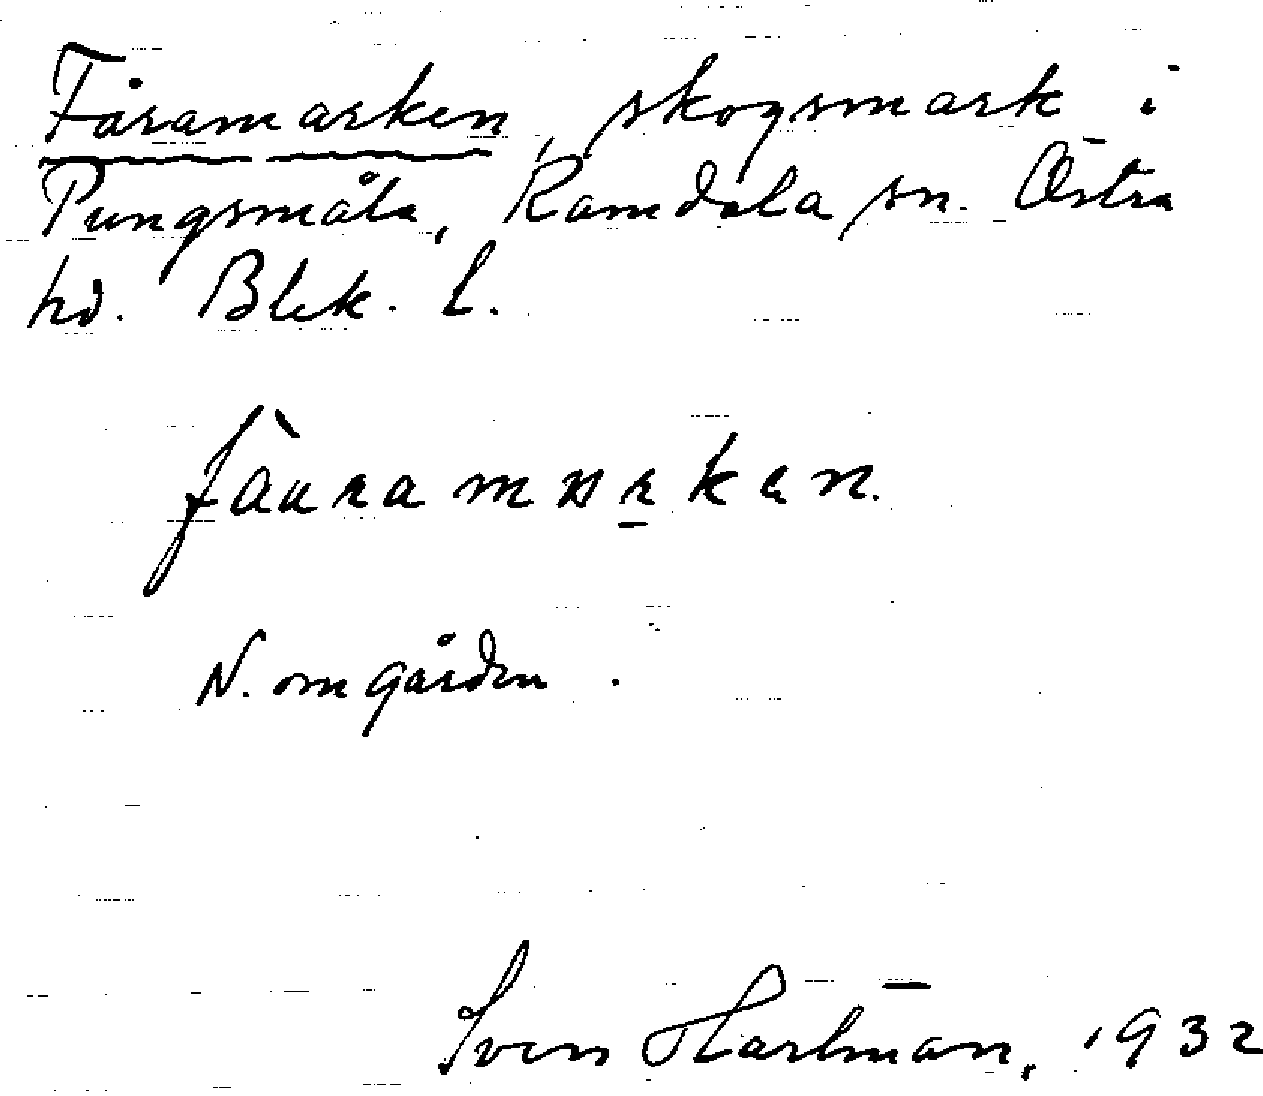 Fåramarken, skogsmark i
Pungsmåla, Ramdala sn. Östra
hd. Blek. l.
N. om gården.
Sven Hartman, 1932